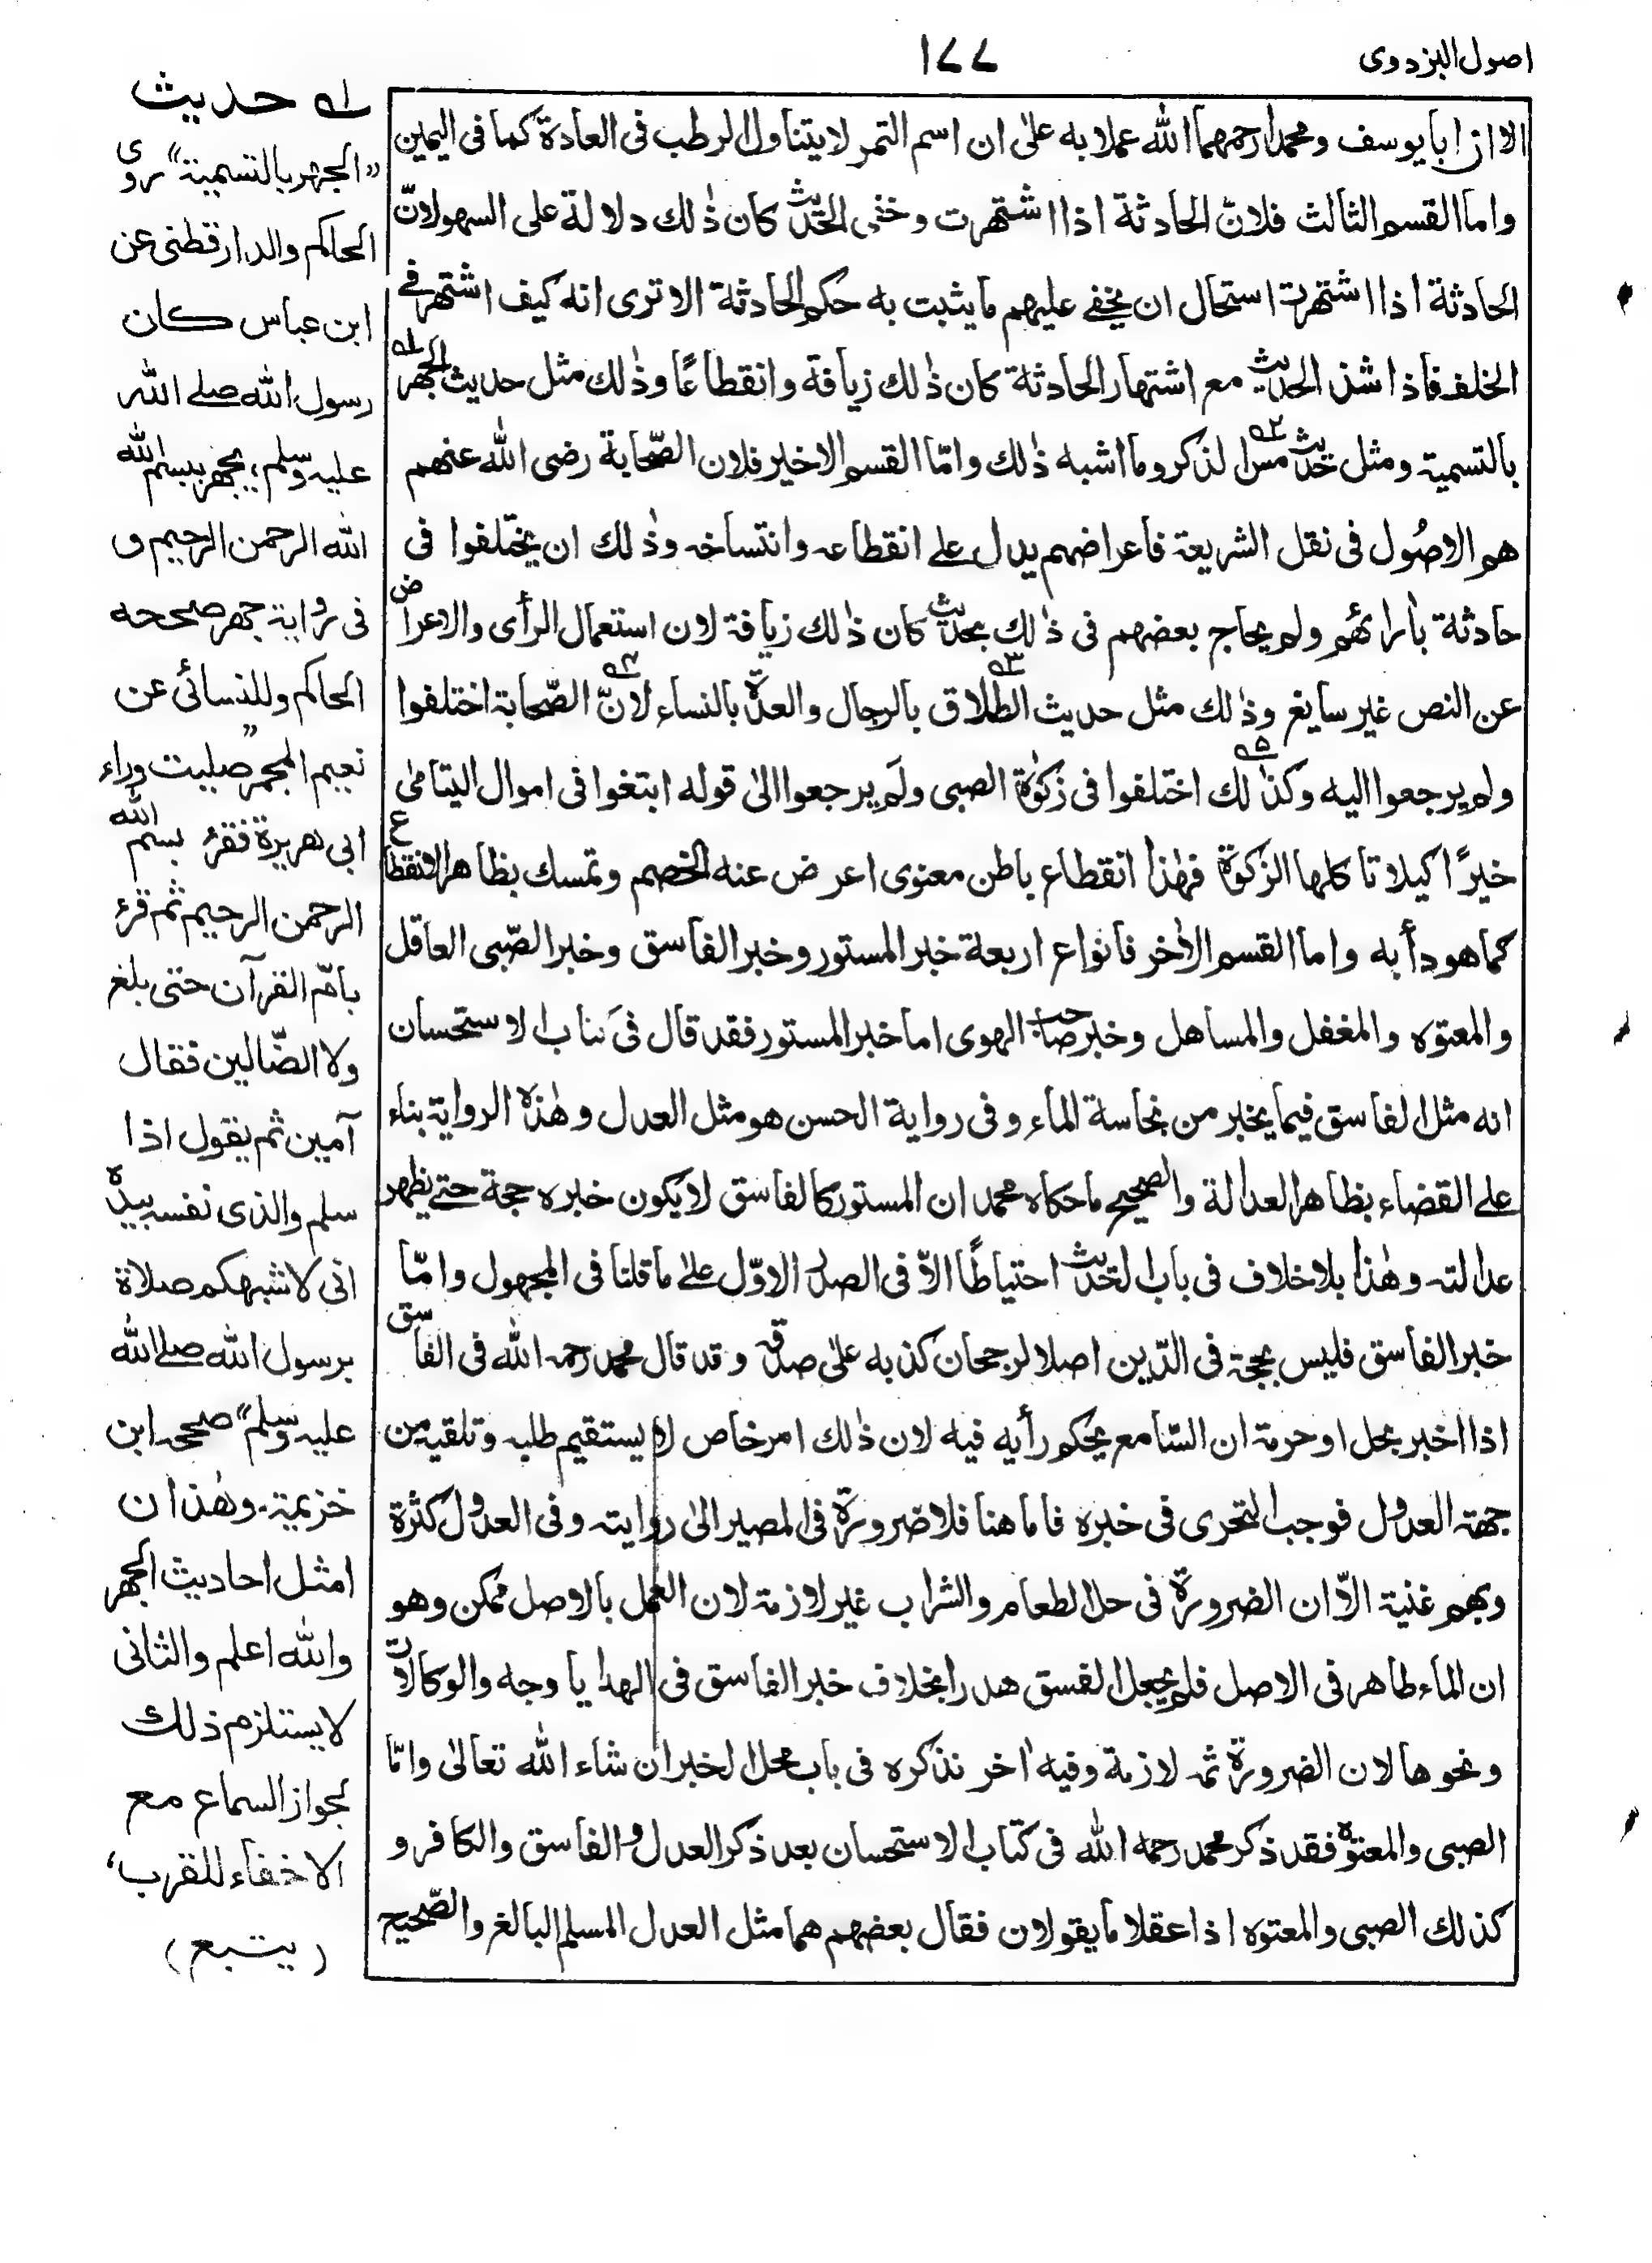 اصول البزدوى
١٧٧
الا ان ابا يوسف ومحمدا رحمهما الله عملا به على ان اسم التمر لا يتناول الرطب فى العادة كما فى اليمين
واما القسم الثالث فلانّ الحادثة اذا اشتهرت وخفى الحديث كان ذٰلك دلالة على السهو لانّ
الحادثة اذا اشتهرت استحال ان يخفے عليهم ما يثبت به حكم الحادثة الا ترى انه كيف اشتهر فے
الخلف فاذا شذ الحديث مع اشتهار الحادثة كان ذلك زيافة وانقطاعًا وذٰلك مثل حديث الجهر ١؎
بالتسمية ومثل حديث مس ٢؎ الذكر وما اشبه ذٰلك وامّا القسم الاخير فلان الصّحابة رضى الله عنهم
هم الاصُول فى نقل الشريعة فاعراضهم يدل علے انقطاعه وانتساخه وذٰلك ان يختلفوا فى
حادثة باٰرائهم ولم يحاج بعضهم فى ذٰلك بحديث كان ذٰلك زيافة لان استعمال الرأى والاعراض
عن النص غير سايغ وذٰلك مثل حديث الطلاق ٣؎ بالرجال والعدّة بالنساء لانّ ٤؎ الصّحابة اختلفوا
ولم يرجعوا اليه وكذٰلك ٥؎ اختلفوا فى زكوٰة الصبى ولَم يرجعوا الىٰ قوله ابتغوا فى اموال اليتامىٰ
خيرًا كيلا تاكلها الزكوٰة فهٰذا انقطاع باطن معنوى اعرض عنه الخصم وتمسك بظاهر الانقطاع
كما هو دأبه واما القسم الاٰخر فانواع اربعة خبر المستور وخبر الفاسق وخبر الصّبى العاقل
والمعتوه والمغفل والمساهل وخبر صاحب الهوى اما خبر المستور فقد قال فى كتاب الاستحسان
انه مثل الفاسق فيما يخبر من نجاسة الماء وفى رواية الحسن هو مثل العدل وهٰذه الرواية بناء
علے القضاء بظاهر العدالة والصحيح ما حكاه محمد ان المستور كالفاسق لا يكون خبره حجة حتے يظهر
عدالته وهٰذا بلا خلاف فى باب الحديث احتياطًا الّا فى الصدر الاوّل علےٰ ما قلنا فى المجهول وامّا
خبر الفاسق فليس بحجة فى الدّين اصلا لرجحان كذبه علىٰ صدقه وقد قال محمد رحمه الله فى الفاسق
اذا اخبر بحل او حرمة ان السّامع يحكم رأيه فيه لان ذٰلك امر خاص لا يستقيم طلبه وتلقيه من
جهة العدول فوجب التحرى فى خبره فاما هنا فلا ضرورة فى المصير الىٰ روايته وفى العدول كثرة
وبهم غنية الّا ان الضرورة فى حل الطعام والشراب غير لازمة لان العمل بالاصل ممكن وهو
ان الماء طاهر فى الاصل فلم يجعل الفسق هدرا بخلاف خبر الفاسق فى الهدايا وجه والوكالات
ونحوها لان الضرورة ثمه لازمة وفيه اٰخر نذكره فى باب محل الخبر ان شاء الله تعالىٰ وامّا
الصبى والمعتوه فقد ذكر محمد رحمه الله فى كتاب الاستحسان بعد ذكر العدل والفاسق والكافر و
كذلك الصبى والمعتوه اذا عقلا ما يقولان فقال بعضهم هما مثل العدل المسلم البالغ والصّحيح
١؎ حديث
”الجهر بالتسمية“ روى
الحاكم والدارقطنى عن
ابن عباس كان
رسول الله صلے الله
عليه وسلم يجهر ببسم الله
الله الرحمن الرحيم و
فى رواية جهر صححه
الحاكم وللنسائى عن
نعيم المجمر ”صليت وراء
ابى هريرة فقرء بسم الله
الرحمن الرحيم ثم قرء
بامّ القرآن حتى بلغ
ولا الضّالين فقال
آمين ثم يقول اذا
سلم والذى نفسه بيده
انى لاشبهكم صلاة
برسول الله صلے الله
عليه وسلم“ صححه ابن
خزيمة۔ وهٰذان
امثل احاديث الجهر
والله اعلم والثانى
لا يستلزم ذلك
لجواز السماع مع
الاخفاء للقرب،
(يتبع)